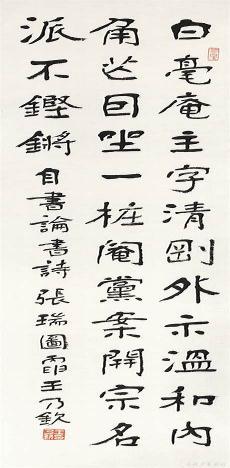 白毫庵主字清剛外示溫和內
角芒囙坐一桩閹黨案開宗名
派不鏗鏘 自書論書詩張瑞圖 王乃欽